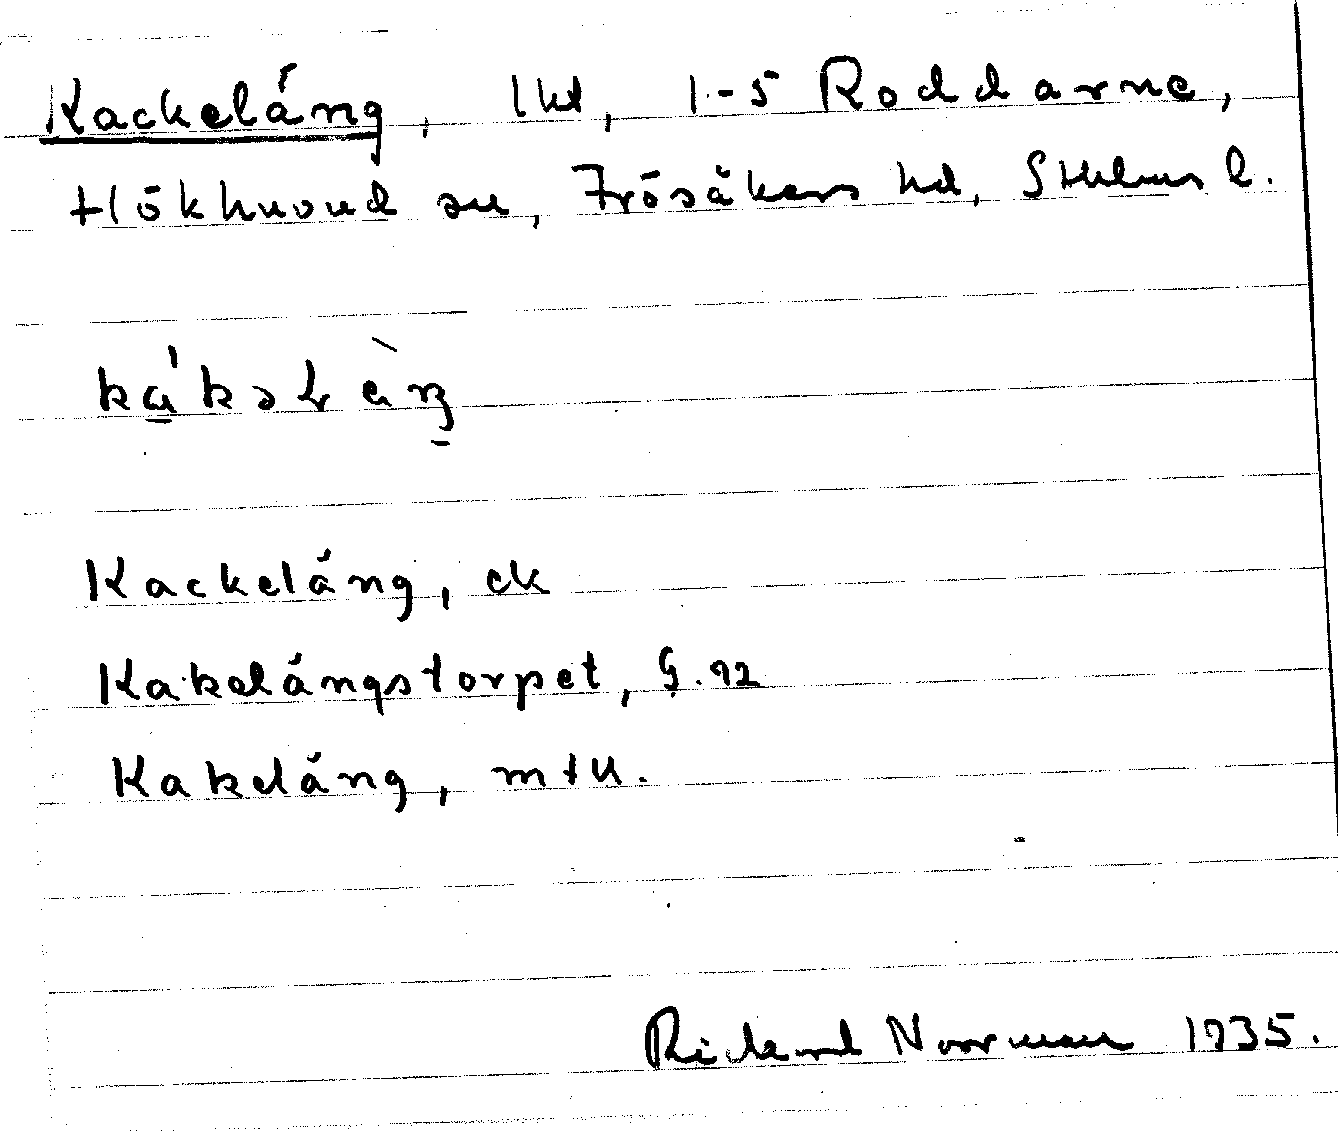 Kackeläng, lht, 1-5 Roddarne,
Hökhuvud sn, Frösåkers hd, Sthlms l.
Kackeläng, ek
Kakelängstorpet, G. 92
Kakeläng, mtu.
Rickard Norrman 1935.